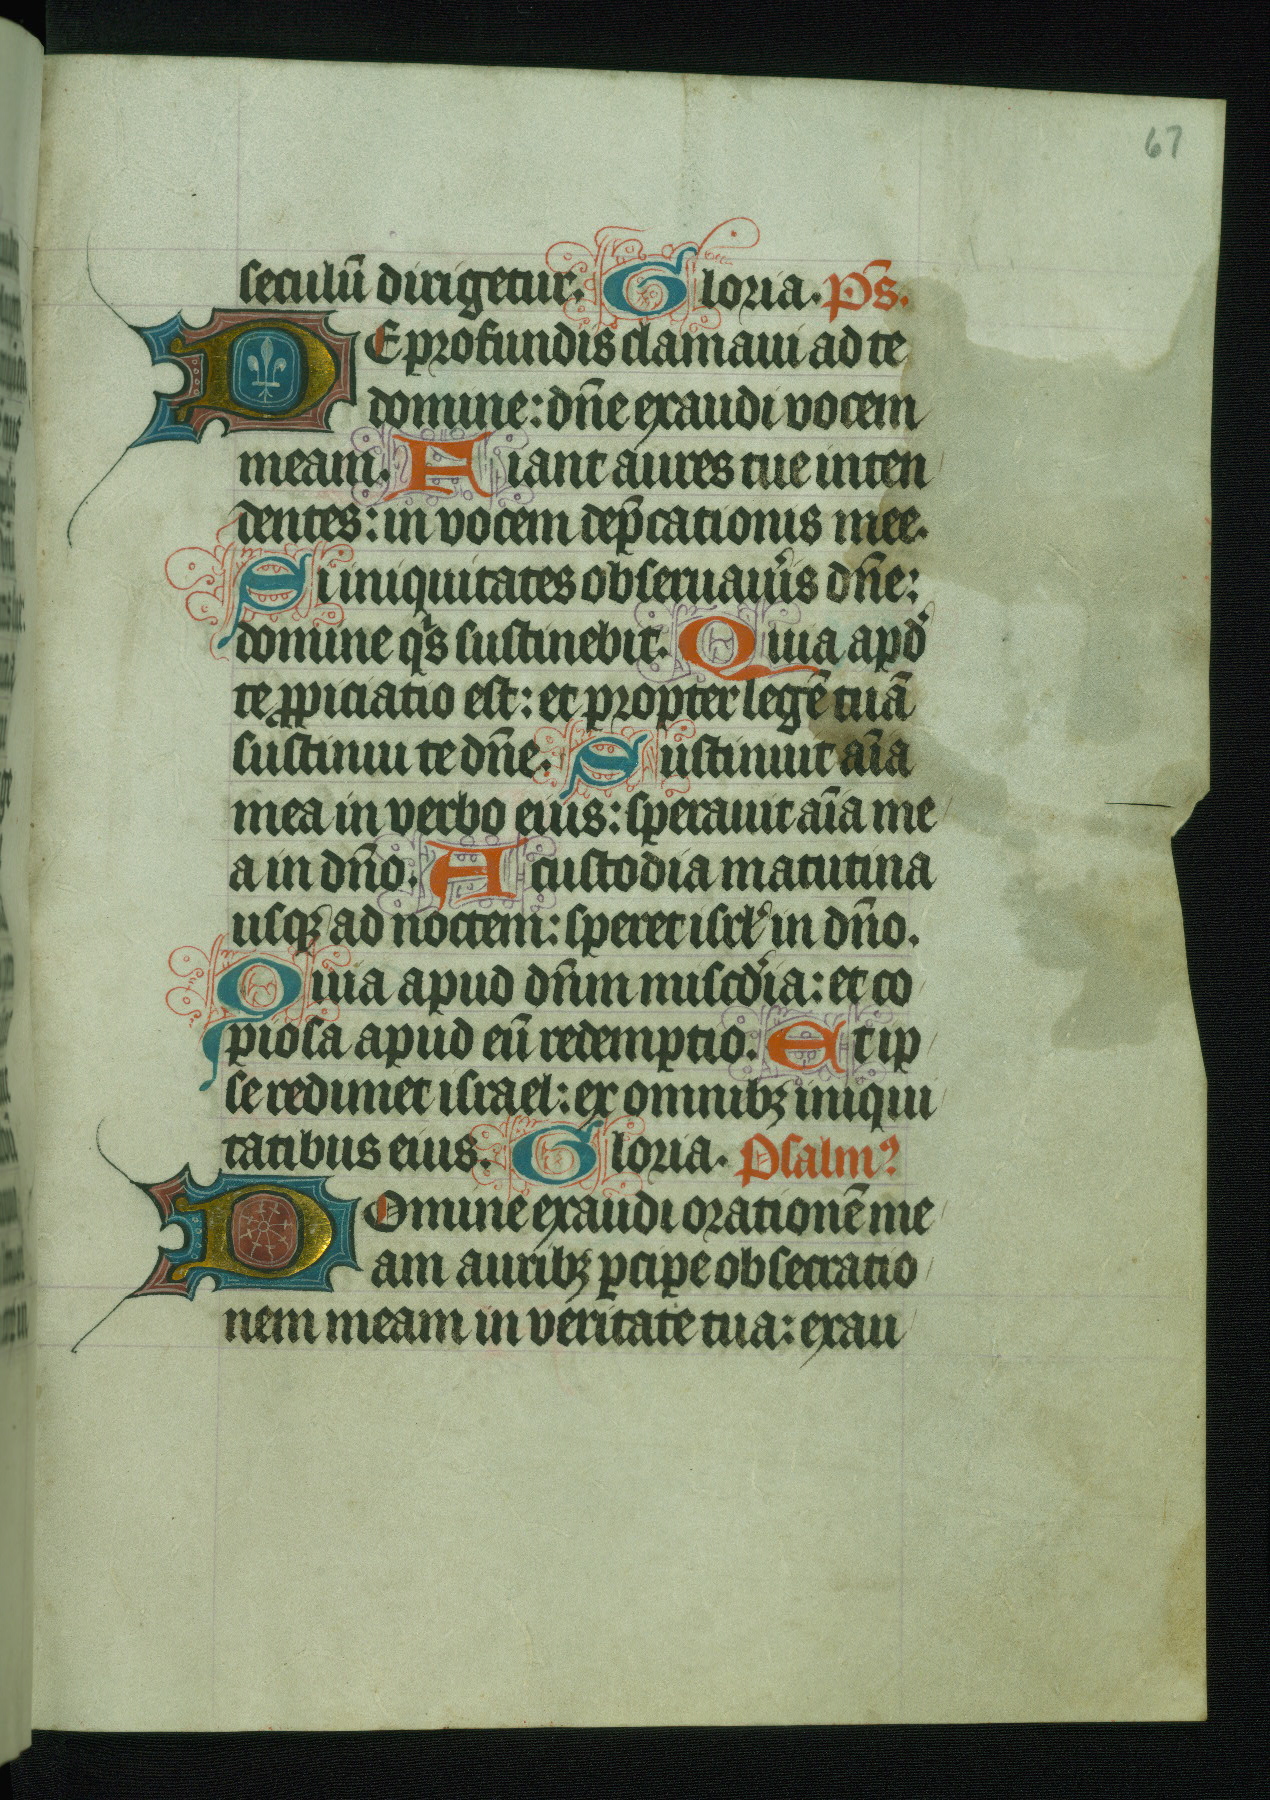 67
seculū dirigetur. Gloria. P̄s.
DE profundis clamaui ad te
domine: dn̄e exaudi vocem
meam. Fiant aures tue inten
dentes: in vocem dep̄cationis mee.
Si iniquitates obseruaūis dn̄e:
domine q̄s sustinebit. Quia apd̄
te ꝓpiciatio est: et propter legē tuā
sustinui te dn̄e. Sustinuit aīa
mea in verbo eius: sperauit aīa me
a in dn̄o. A custodia matutina
usqꝫ ad noctem: speret isrl̄ in dn̄o.
Quia apud dn̄m misc̄dia: et co
piosa apud eū redemptio. Et ip
se redimet israel: ex omnibꝫ iniqui
tatibus eius. Gloria. Psalmꝰ
DOmine exaudi orationē me
am auribꝫ ꝑcipe obsecratio
nem meam in veritate tua: exau